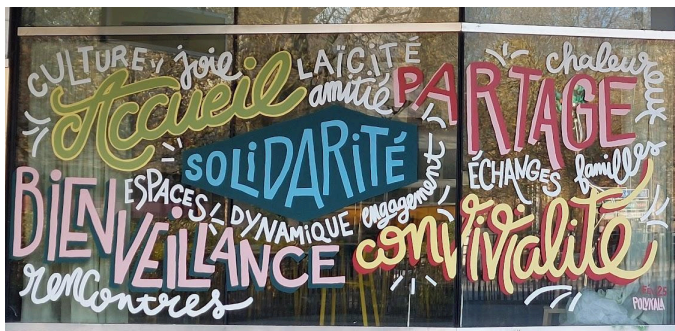 CULTURE joie LAÏCITÉ chaleureux
Accueil amitié PARTAGE
SOLIDARITÉ
ÉCHANGES familles
BIENVEILLANCE ESPACES DYNAMIQUE engagement
convivialité
rencontres
POLYKALA